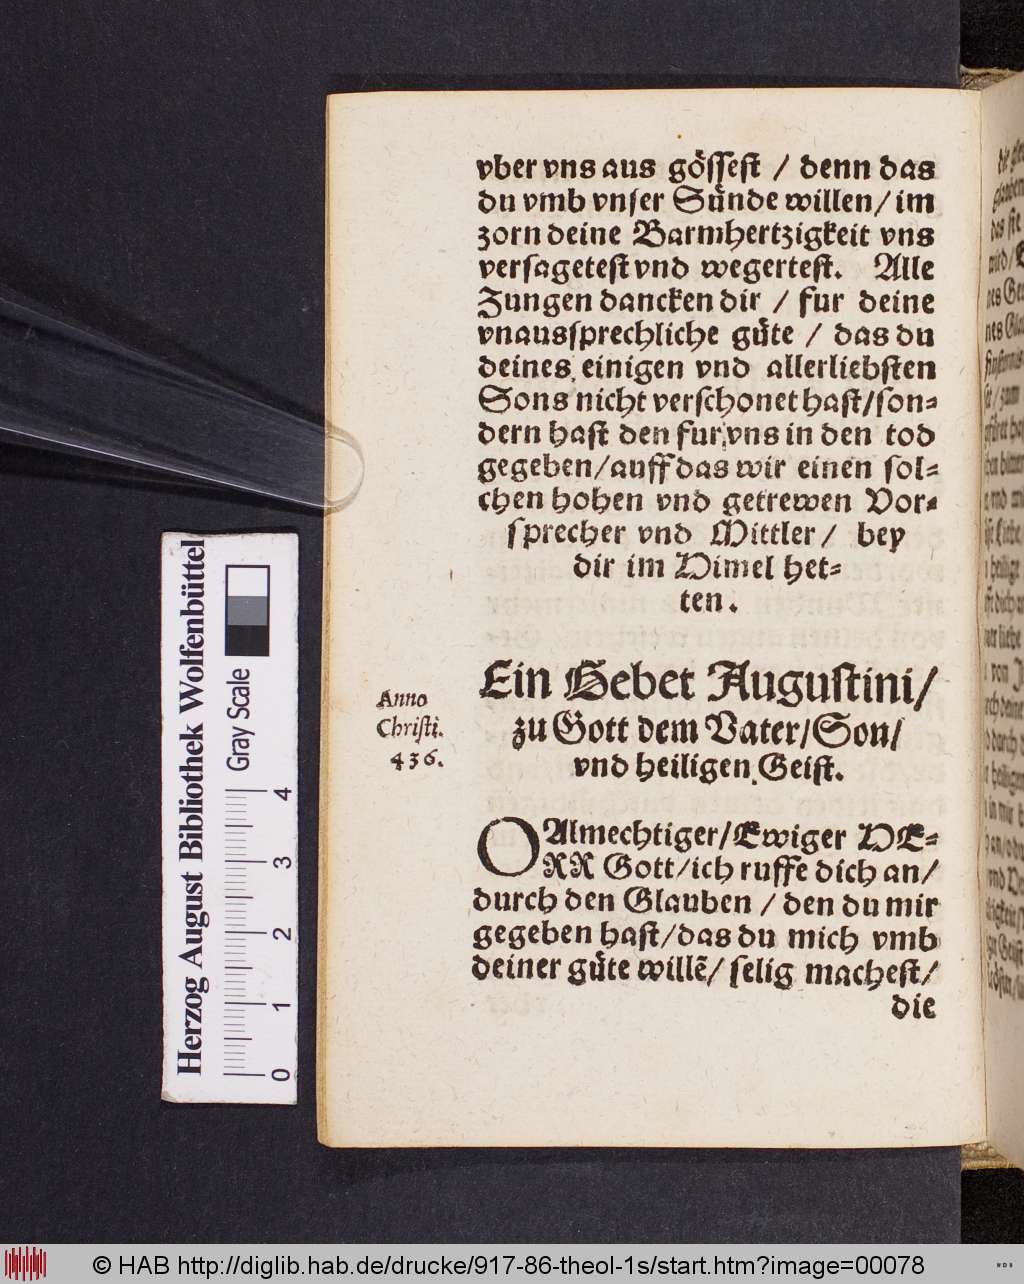 vber vns aus gösſeſt / denn das
du vmb vnſer Sünde willen/ im
zorn deine Barmhertzigkeit vns
verſageteſt vnd wegerteſt. Alle
Zungen dancken dir / fur deine
vnausſprechliche gůte / das du
deines einigen vnd allerliebſten
Sons nicht verſchonet haſt/ſon⸗
dern haſt den fur vns in den tod
gegeben/auff das wir einen ſol⸗
chen hohen vnd getrewen Vor⸗
ſprecher vnd Mittler/ bey
dir im Himel het⸗
ten.
Ein Gebet Auguſtini/
zu Gott dem Vater/Son/
vnd heiligen Geiſt.
Anno
Chriſti.
436.
O Almechtiger/Ewiger HE⸗
RR Gott/ich ruffe dich an/
durch den Glauben / den du mir
gegeben haſt/das du mich vmb
deiner gůte willẽ/ ſelig macheſt/
die
Herzog August Bibliothek Wolfenbüttel
Gray Scale
0 1 2 3 4
© HAB http://diglib.hab.de/drucke/917-86-theol-1s/start.htm?image=00078